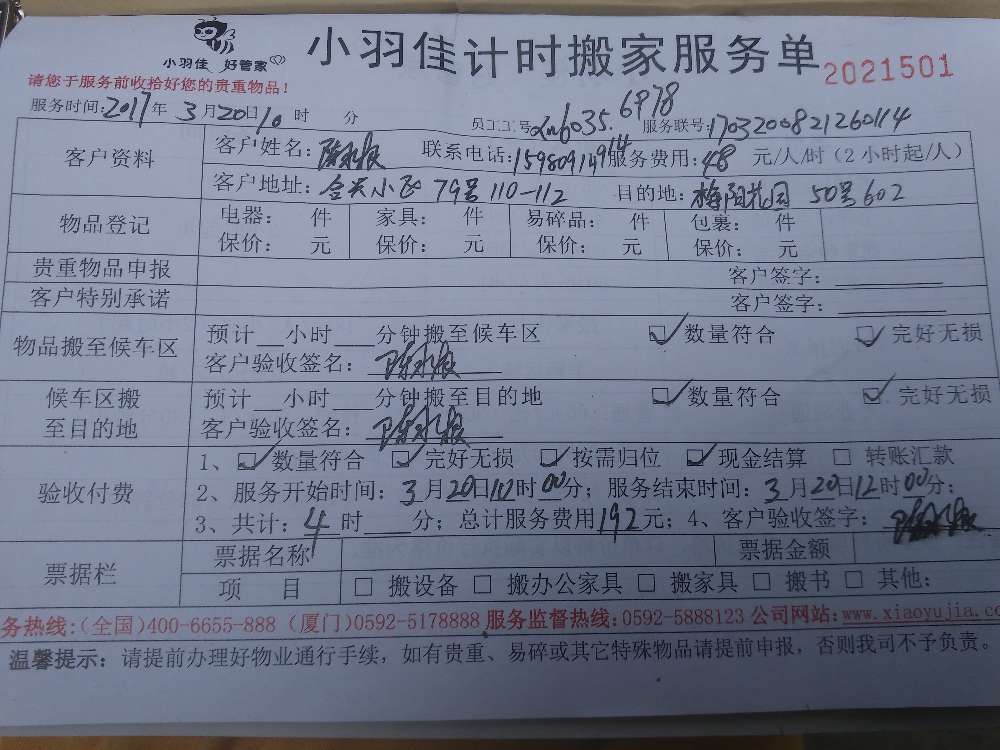 小羽佳 好管家
小羽佳计时搬家服务单 2021501
请您于服务前收拾好您的贵重物品！
服务时间：2017年 3月20日10时 分 员工工号 6035.6978 服务联号：1703200821260114
客户资料 客户姓名： 联系电话：15980914914 服务费用：48 元/人/时（2小时起/人）
客户地址：金尖小区 79号 110-112 目的地：梅阳花园 50号602
物品登记 电器： 件 家具： 件 易碎品： 件 包裹： 件
保价： 元 保价： 元 保价： 元 保价： 元
贵重物品申报 客户签字：
客户特别承诺 客户签字：
物品搬至候车区 预计__小时___分钟搬至候车区 ☑数量符合 ☑完好无损
客户验收签名：
候车区搬至目的地 预计__小时___分钟搬至目的地 ☑数量符合 ☑完好无损
客户验收签名：
验收付费 1、☑数量符合 ☑完好无损 ☑按需归位 ☑现金结算 □ 转账汇款
2、服务开始时间：3月20日10时00分；服务结束时间：3月20日12时00分；
3、共计：4时___分；总计服务费用192元；4、客户验收签字：
票据栏 票据名称 票据金额
项 目 □ 搬设备 □ 搬办公家具 □ 搬家具 □ 搬书 □ 其他：
务热线：（全国）400-6655-888（厦门）0592-5178888 服务监督热线：0592-5888123 公司网站：www.xiaoyujia.co
温馨提示：请提前办理好物业通行手续，如有贵重、易碎或其它特殊物品请提前申报，否则我司不予负责。